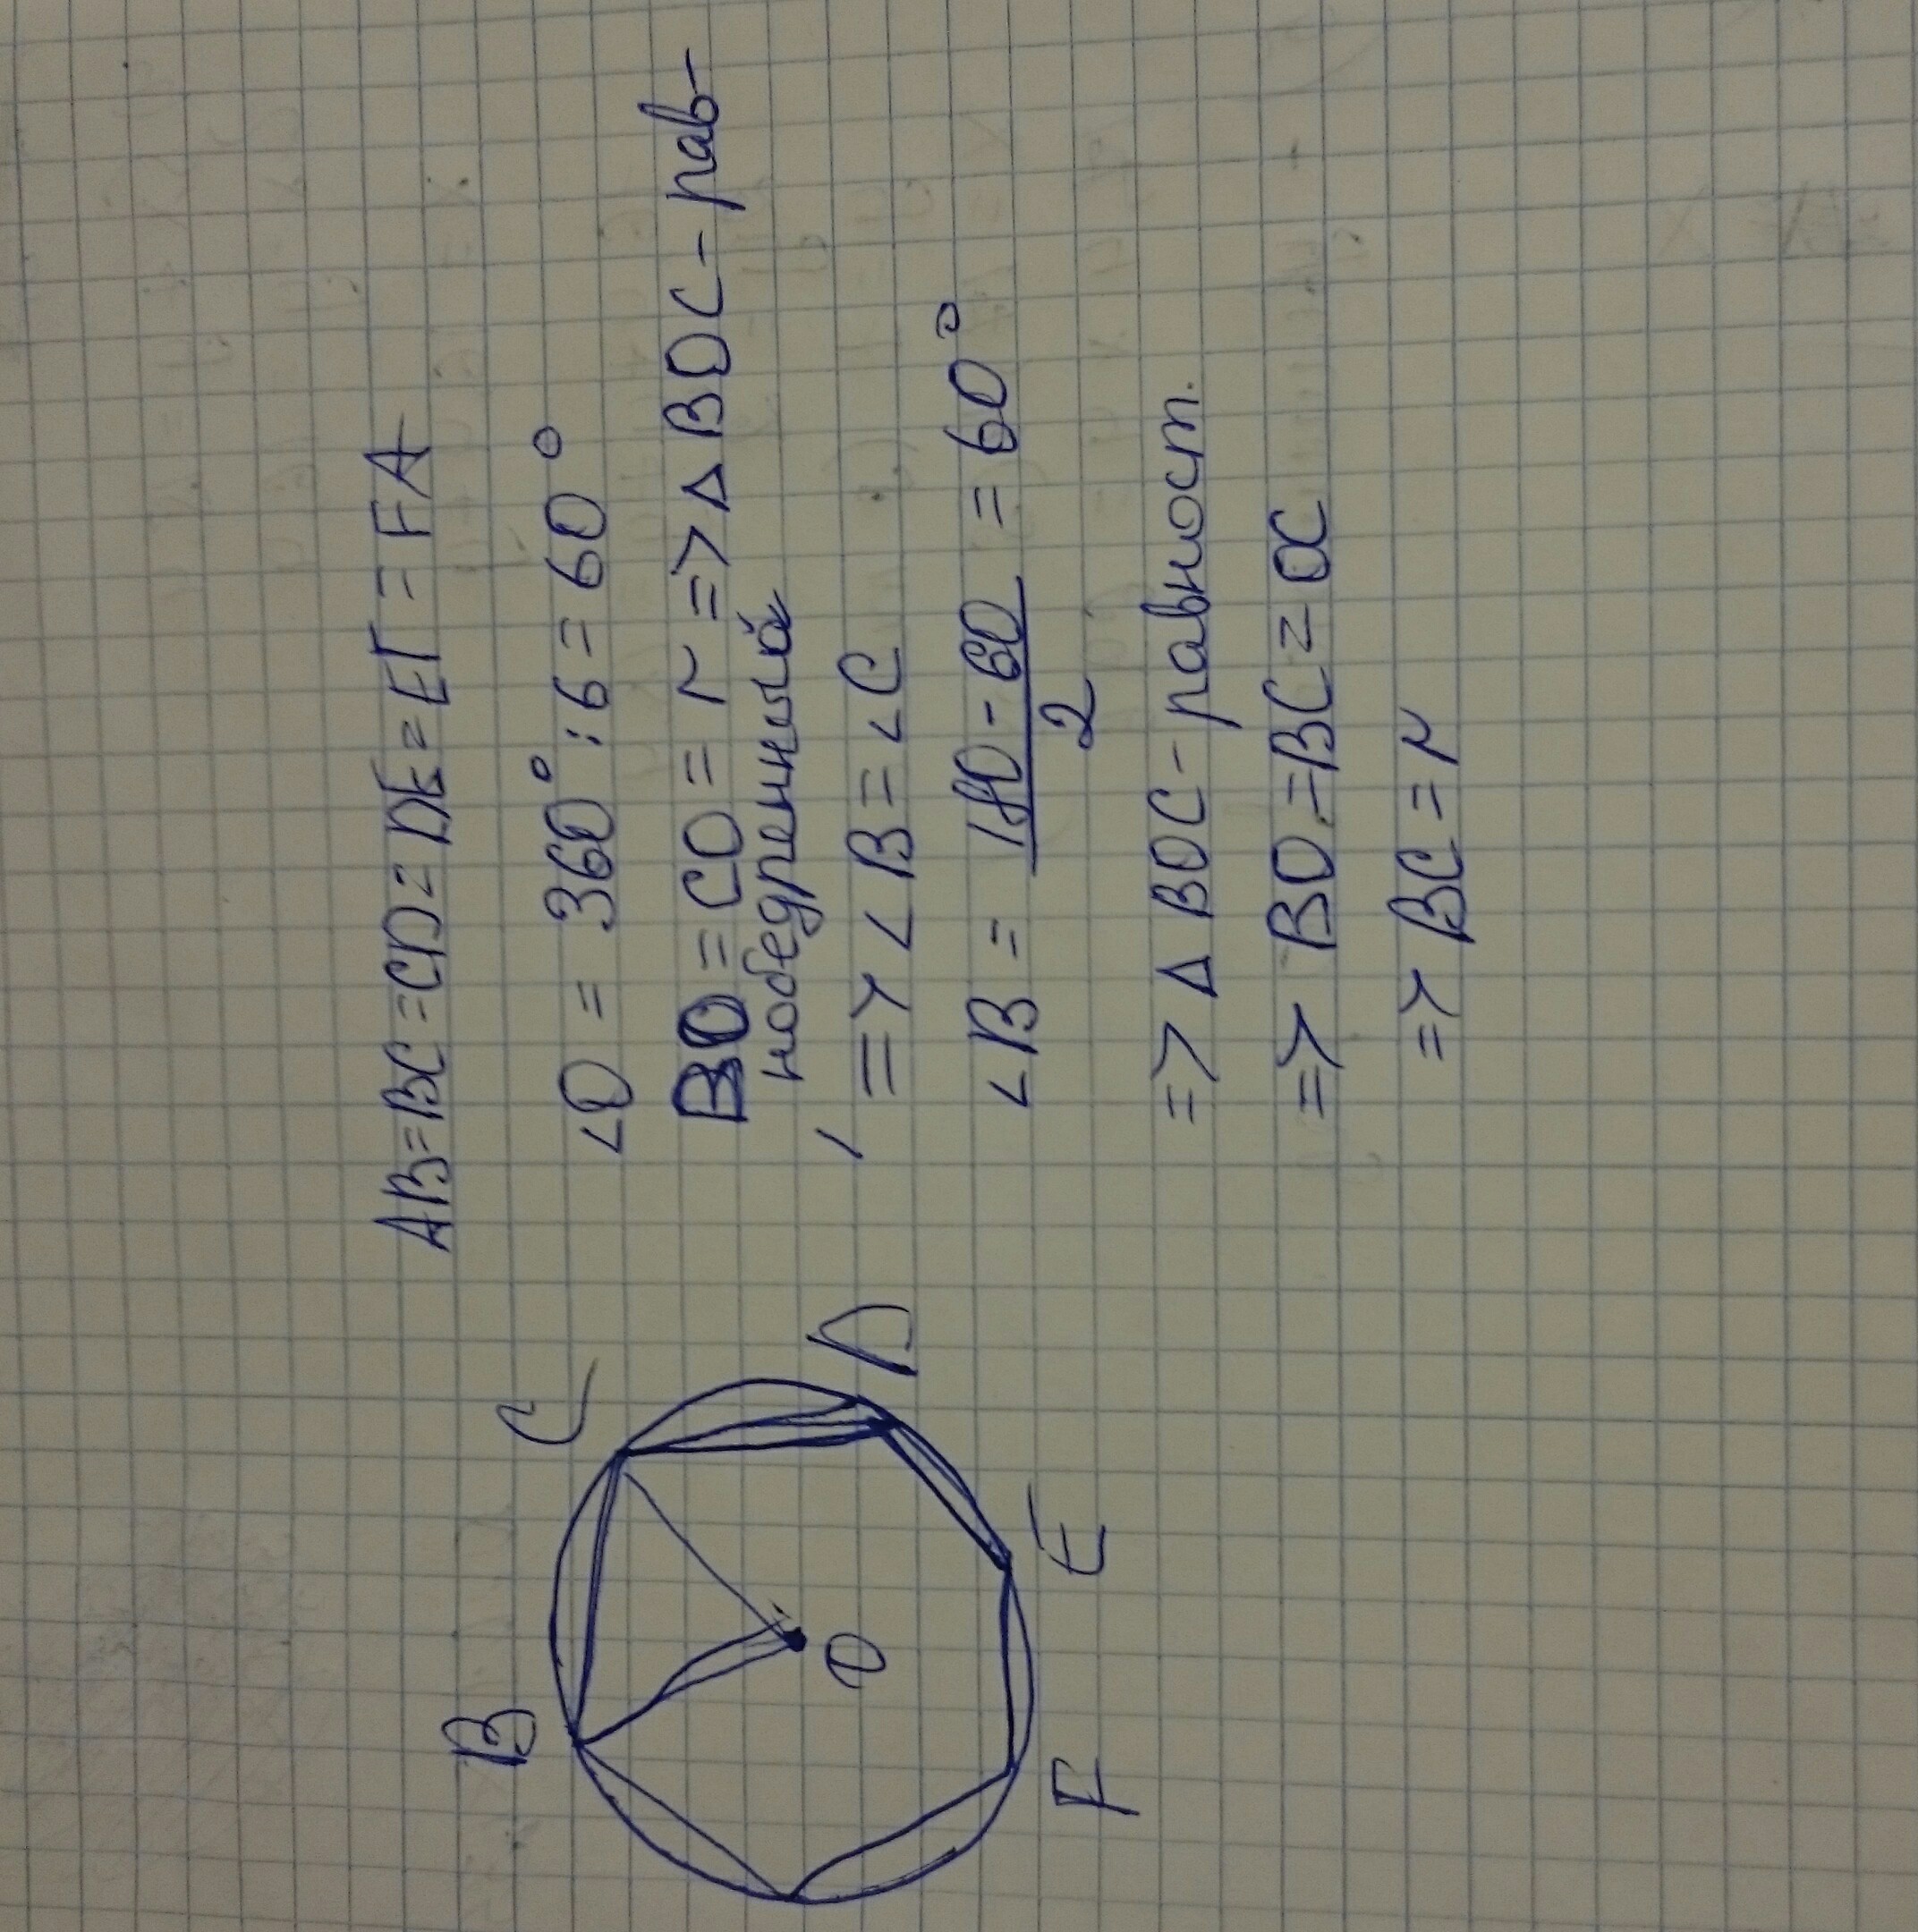 AB=BC=CD=DE=EF=FA
∠O = 360° : 6 = 60°
BO = CO = r => △ BOC - рав-
нобедренный
=> ∠B = ∠C
∠B = (180 - 60)/2 = 60°
=> △ BOC - равност.
=> BO = BC = OC
=> BC = r
B
C
D
O
E
F